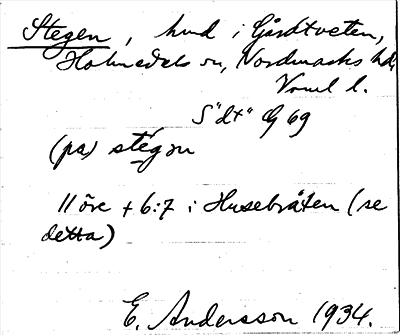 Stegen, hmd i Gårdtveten,
Holmedals sn, Nordmarks hd,
Vrml l.
S "dt" G 69
(på) stégon
11 öre + 6:7 i Husebråten (se
detta)
E. Andersson 1934.